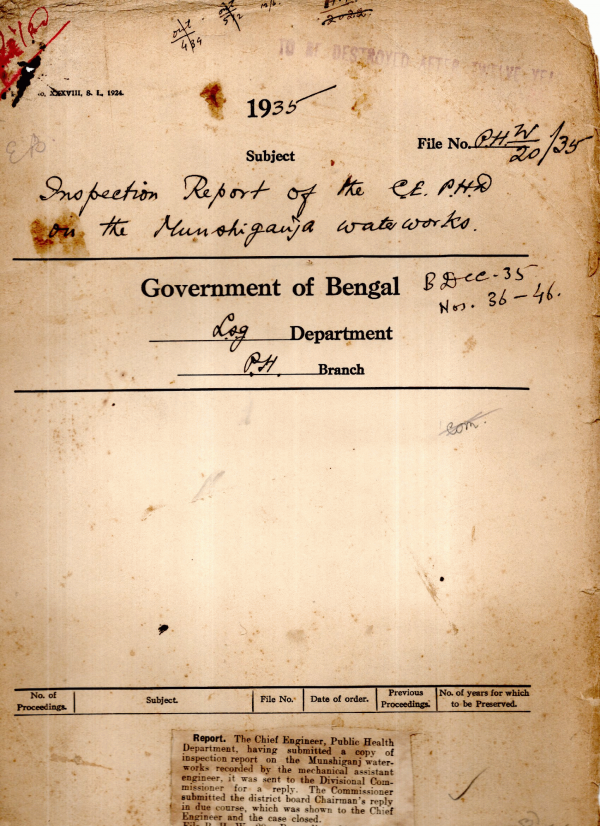 out
4/34
out
5/2
TO BE DESTROYED AFTER
XXXVIII, S. I., 1924.
1935
File No. P.H.W/20/35
Subject
Inspection Report of the C.E. P.H.D
on the Munshiganja waterworks.
Government of Bengal
B Dec-35
Nos. 36-46.
Lsg Department
P.H. Branch
com.
No. of Proceedings. Subject. File No. Date of order. Previous Proceedings. No. of years for which to be Preserved.
Report. The Chief Engineer, Public Health
Department, having submitted a copy of
inspection report on the Munshiganj water-
works recorded by the mechanical assistant
engineer, it was sent to the Divisional Com-
missioner for a reply. The Commissioner
submitted the district board Chairman's reply
in due course, which was shown to the Chief
Engineer and the case closed.